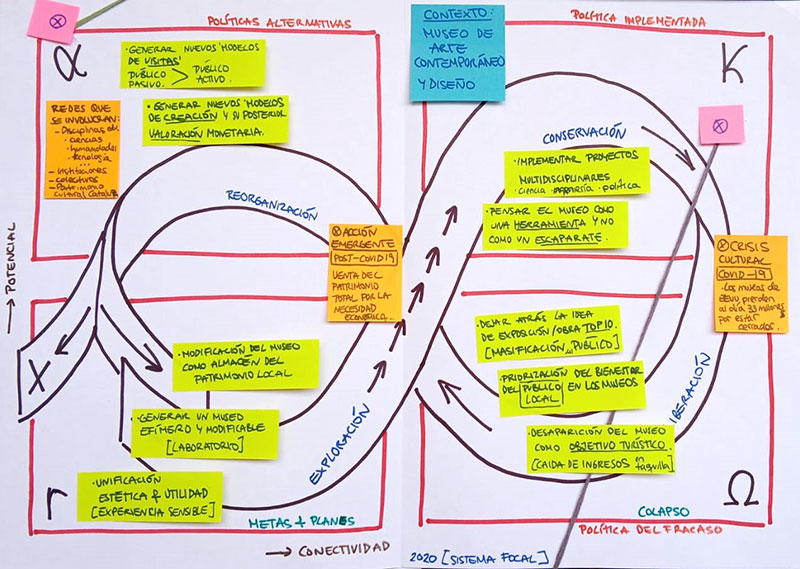 POLÍTICAS ALTERNATIVAS
α
· GENERAR NUEVOS 'MODELOS
DE VISITAS'
PÚBLICO PASIVO. > PÚBLICO ACTIVO.
· GENERAR NUEVOS 'MODELOS
DE CREACIÓN Y SU POSTERIOR
VALORACIÓN MONETARIA.
REDES QUE
SE INVOLUCRAN:
- Disciplinas de
· ciencias
· humanidades
· tecnología
...
- Instituciones
- colectivos
cultural
REORGANIZACIÓN
⊗ ACCIÓN
EMERGENTE
POST-COVID19
VENTA DEL
PATRIMONIO
TOTAL POR LA
NECESIDAD
ECONÓMICA.
→ POTENCIAL
X
· MODIFICACIÓN DEL MUSEO
COMO ALMACÉN DEL
PATRIMONIO LOCAL
· GENERAR UN MUSEO
EFÍMERO Y MODIFICABLE
[LABORATORIO]
· UNIFICACIÓN
ESTÉTICA & UTILIDAD
[EXPERIENCIA SENSIBLE]
r
EXPLORACIÓN
METAS + PLANES
→ CONECTIVIDAD
CONTEXTO:
MUSEO DE
ARTE
CONTEMPORÁNEO
Y DISEÑO
POLÍTICA IMPLEMENTADA
K
CONSERVACIÓN
· IMPLEMENTAR PROYECTOS
MULTIDISCIPLINARES
· ciencia · ingeniería · política
· PENSAR EL MUSEO COMO
UNA HERRAMIENTA Y NO
COMO UN ESCAPARATE.
⊗ CRISIS
CULTURAL
COVID-19
· Los museos de
EEUU pierden
al día 33 millones $
por estar
cerrados.
· DEJAR ATRÁS LA IDEA
DE EXPOSICIÓN/OBRA TOP10.
[MASIFICACIÓN del PÚBLICO]
· PRIORIZACIÓN DEL BIENESTAR
DEL PÚBLICO LOCAL EN LOS MUSEOS
IBERACIÓN
· DESAPARICIÓN DEL MUSEO
COMO OBJETIVO TURÍSTICO.
[CAIDA DE INGRESOS en taquilla]
Ω
COLAPSO
POLÍTICA DEL FRACASO
2020 [SISTEMA FOCAL]